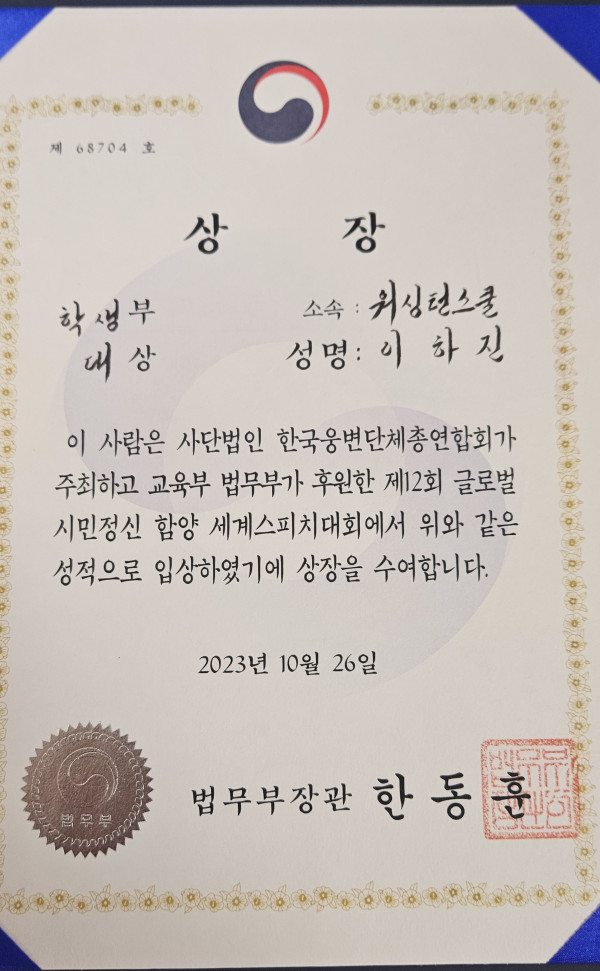 제 68704 호
상 장
학생부 소속 : 워싱턴스쿨
대 상 성명 : 이 하 진
이 사람은 사단법인 한국웅변단체총연합회가
주최하고 교육부 법무부가 후원한 제12회 글로벌
시민정신 함양 세계스피치대회에서 위와 같은
성적으로 입상하였기에 상장을 수여합니다.
2023년 10월 26일
법무부장관 한 동 훈
법무부